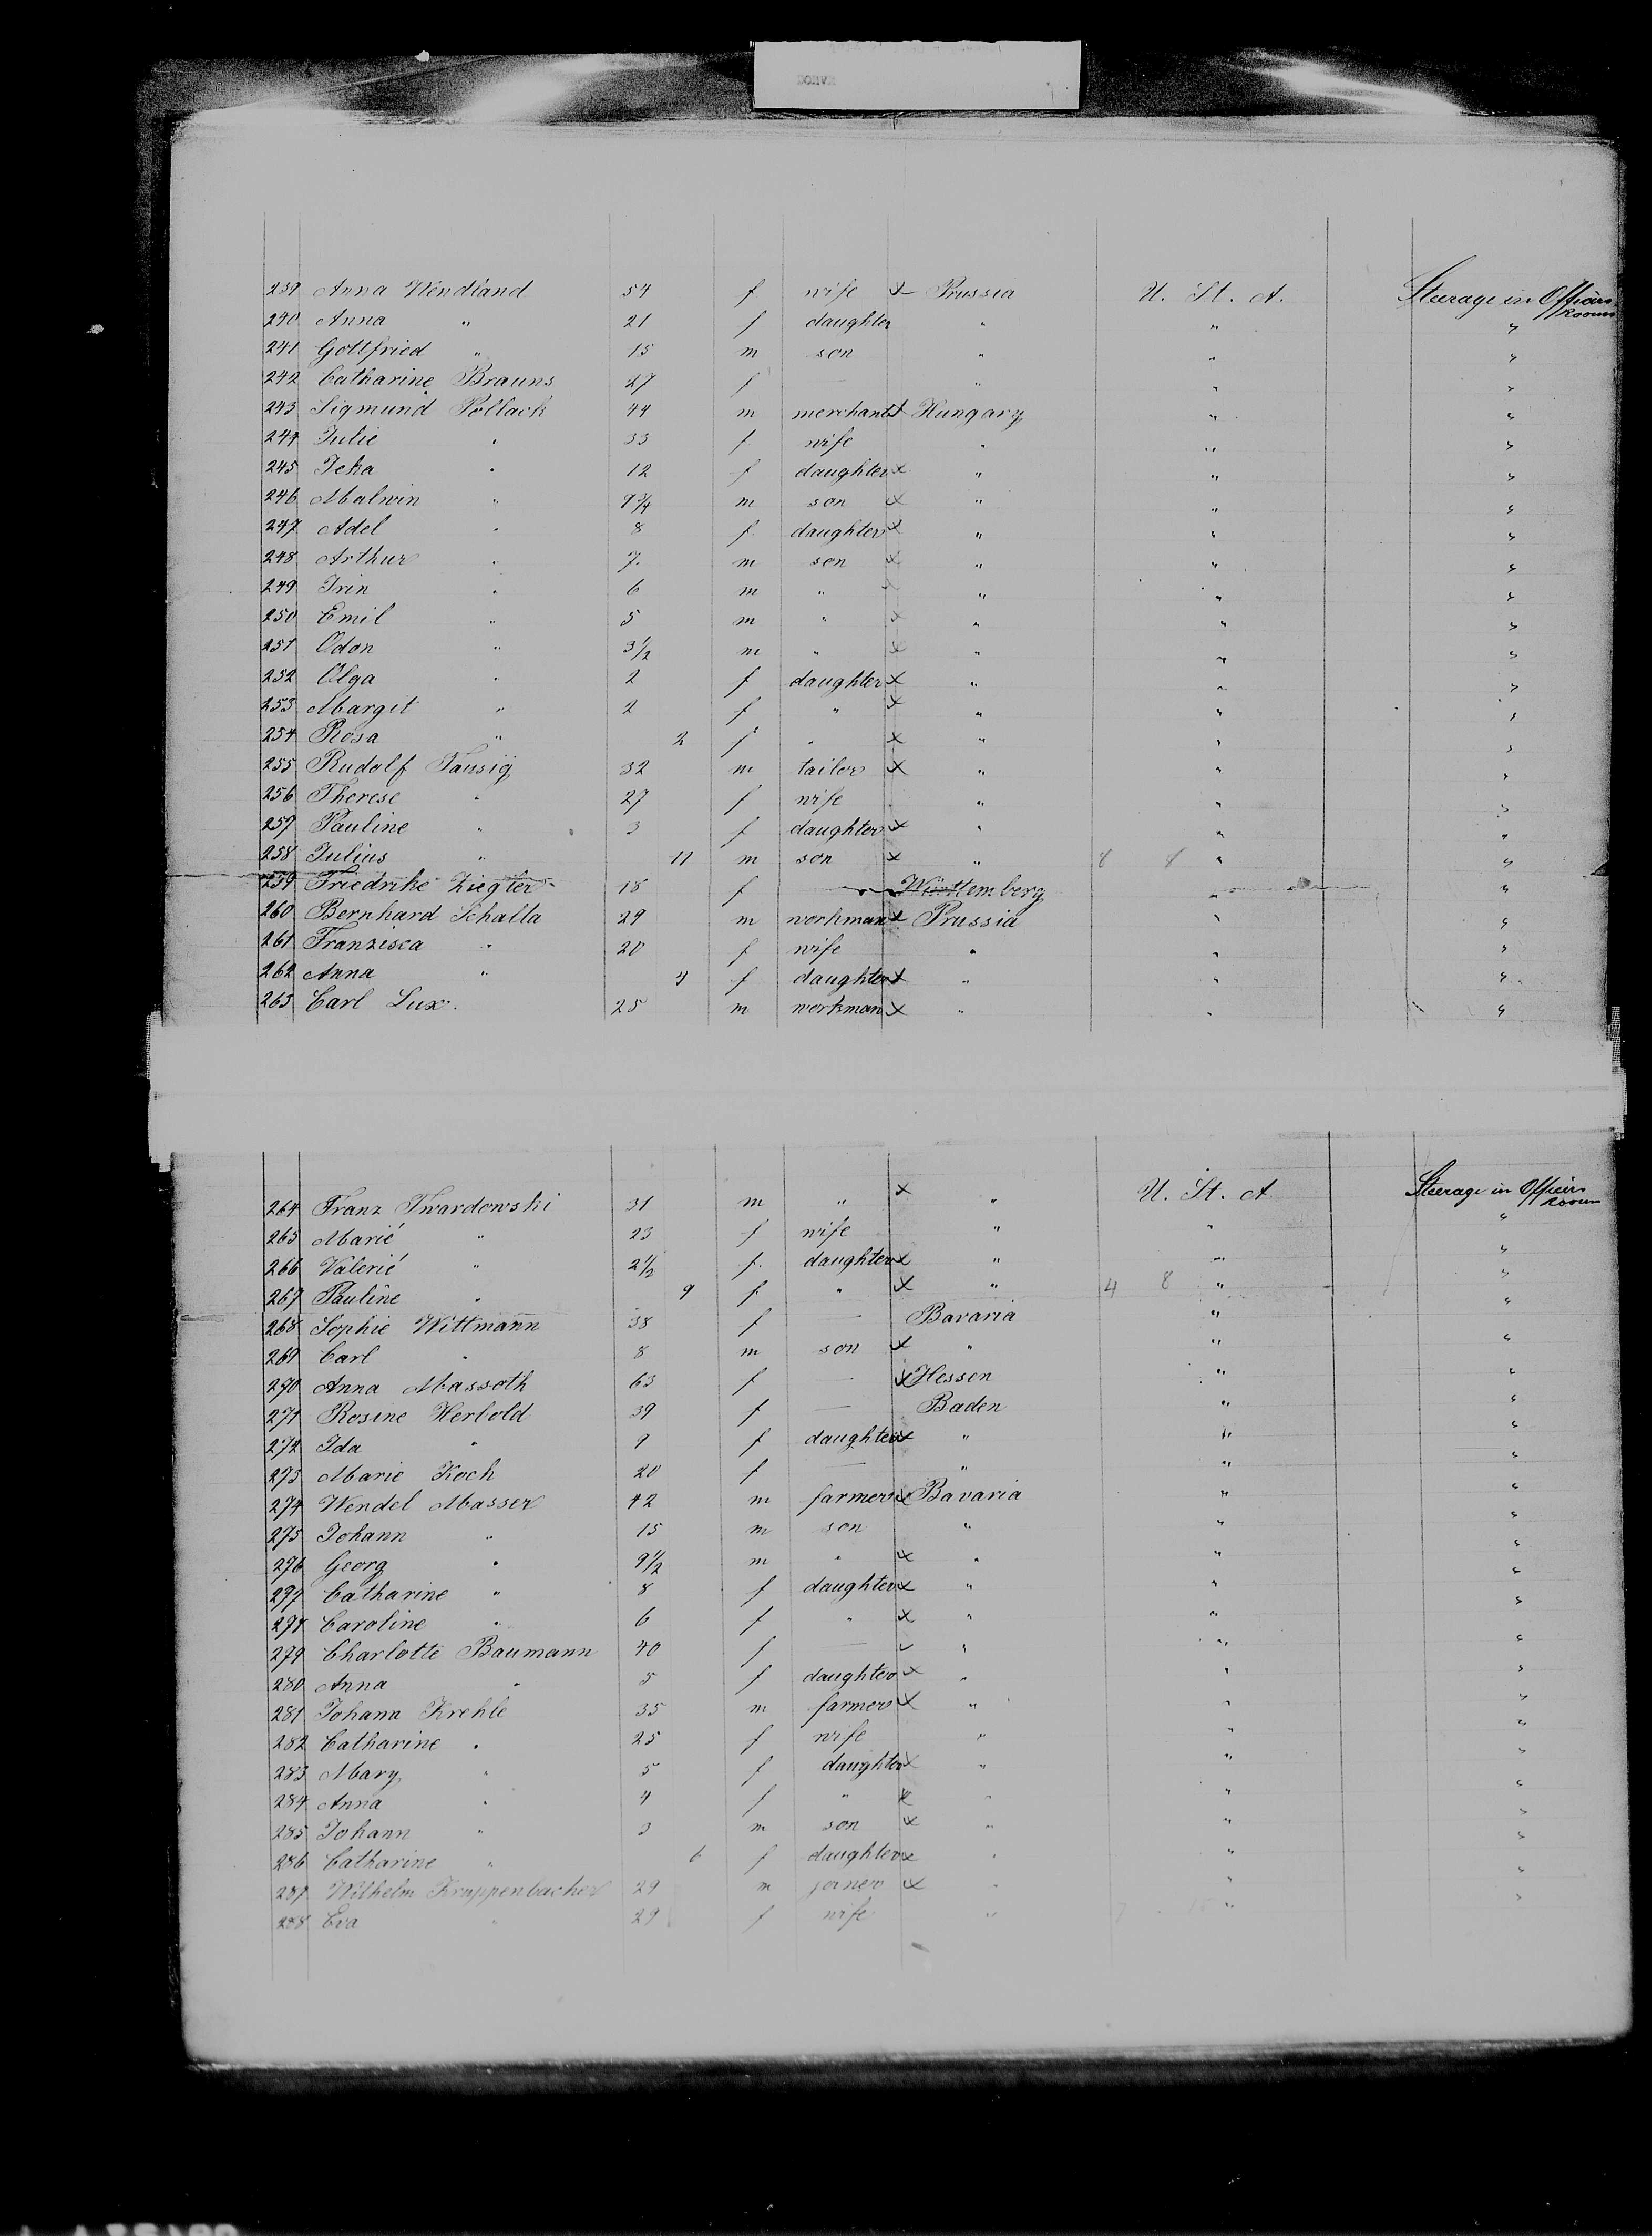 239 Anna Wendland 54 f wife x Prussia U. St. A. Steerage in Officers Rooms
240 Anna " 21 f daughter " " "
241 Gottfried " 15 m son " " "
242 Catharine Brauns 27 f — " " "
243 Sigmund Pollack 44 m merchant x Hungary " "
244 Julie " 33 f wife " " "
245 Jeka " 12 f daughter x " " "
246 Malwin " 9 3/4 m son x " " "
247 Adel " 8 f daughter x " " "
248 Arthur " 7 m son x " " "
249 Irin " 6 m " x " " "
250 Emil " 5 m " x " " "
251 Odon " 3 1/2 m " x " " "
252 Olga " 2 f daughter x " " "
253 Margit " 2 f " x " " "
254 Rosa " 2 f " x " " "
255 Rudolf Tausig 32 m tailor x " " "
256 Therese " 27 f wife " " "
257 Pauline " 3 f daughter x " " "
258 Julius " 11 m son x " 8 8 " "
259 Friedrike Ziegler 18 f — Württemberg " "
260 Bernhard Schalla 29 m workman x Prussia " "
261 Franzisca " 20 f wife " " "
262 Anna " 4 f daughter x " " "
263 Carl Lux. 25 m workman x " " "
264 Franz Twardowski 31 m " x " U. St. A Steerage in Officers Rooms
265 Marie " 23 f wife " " "
266 Valerie " 2 1/2 f. daughter x " " "
267 Pauline " 9 f " x " 4 8 " "
268 Sophie Wittmann 38 f — Bavaria " "
269 Carl " 8 m son x " " "
270 Anna Massoth 63 f — x Hessen " "
271 Rosine Herbold 39 f — Baden " "
272 Ida " 9 f daughter x " " "
273 Marie Koch 20 f — " " "
274 Wendel Masser 42 m farmer x Bavaria " "
275 Johann " 15 m son " " "
276 Georg " 9 1/2 m " x " " "
277 Catharine " 8 f daughter x " " "
278 Caroline " 6 f " x " " "
279 Charlotte Baumann 40 f — " " "
280 Anna " 5 f daughter x " " "
281 Johann Krehle 35 m farmer x " " "
282 Catharine " 25 f wife " " "
283 Mary " 5 f daughter x " " "
284 Anna " 4 f " x " " "
285 Johann " 3 m son x " " "
286 Catharine " 6 f daughter x " " "
287 Wilhelm Kruppenbacher 29 m joiner x " " "
288 Eva " 29 f wife " " "